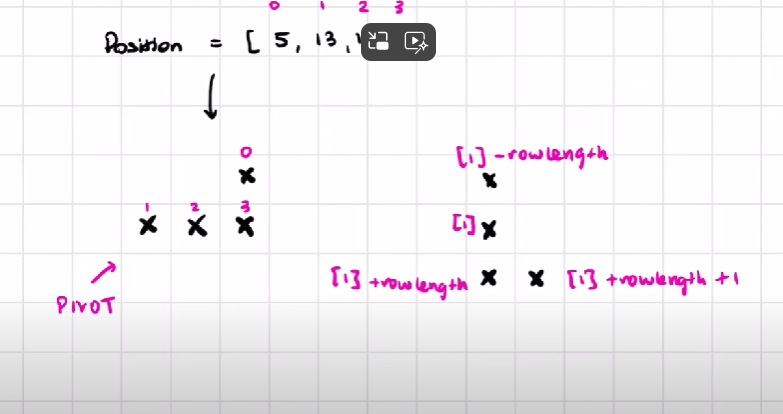 0 1 2 3
Position = [ 5, 13, 1
0
x
1 2 3
x x x
PIVOT
[1] -rowlength
x
[1] x
[1] +rowlength x x [1] +rowlength +1